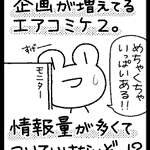 企画が増えてる
エアコミケ2。
めちゃくちゃ
いっぱいある!!
モニター
情報量が多くて